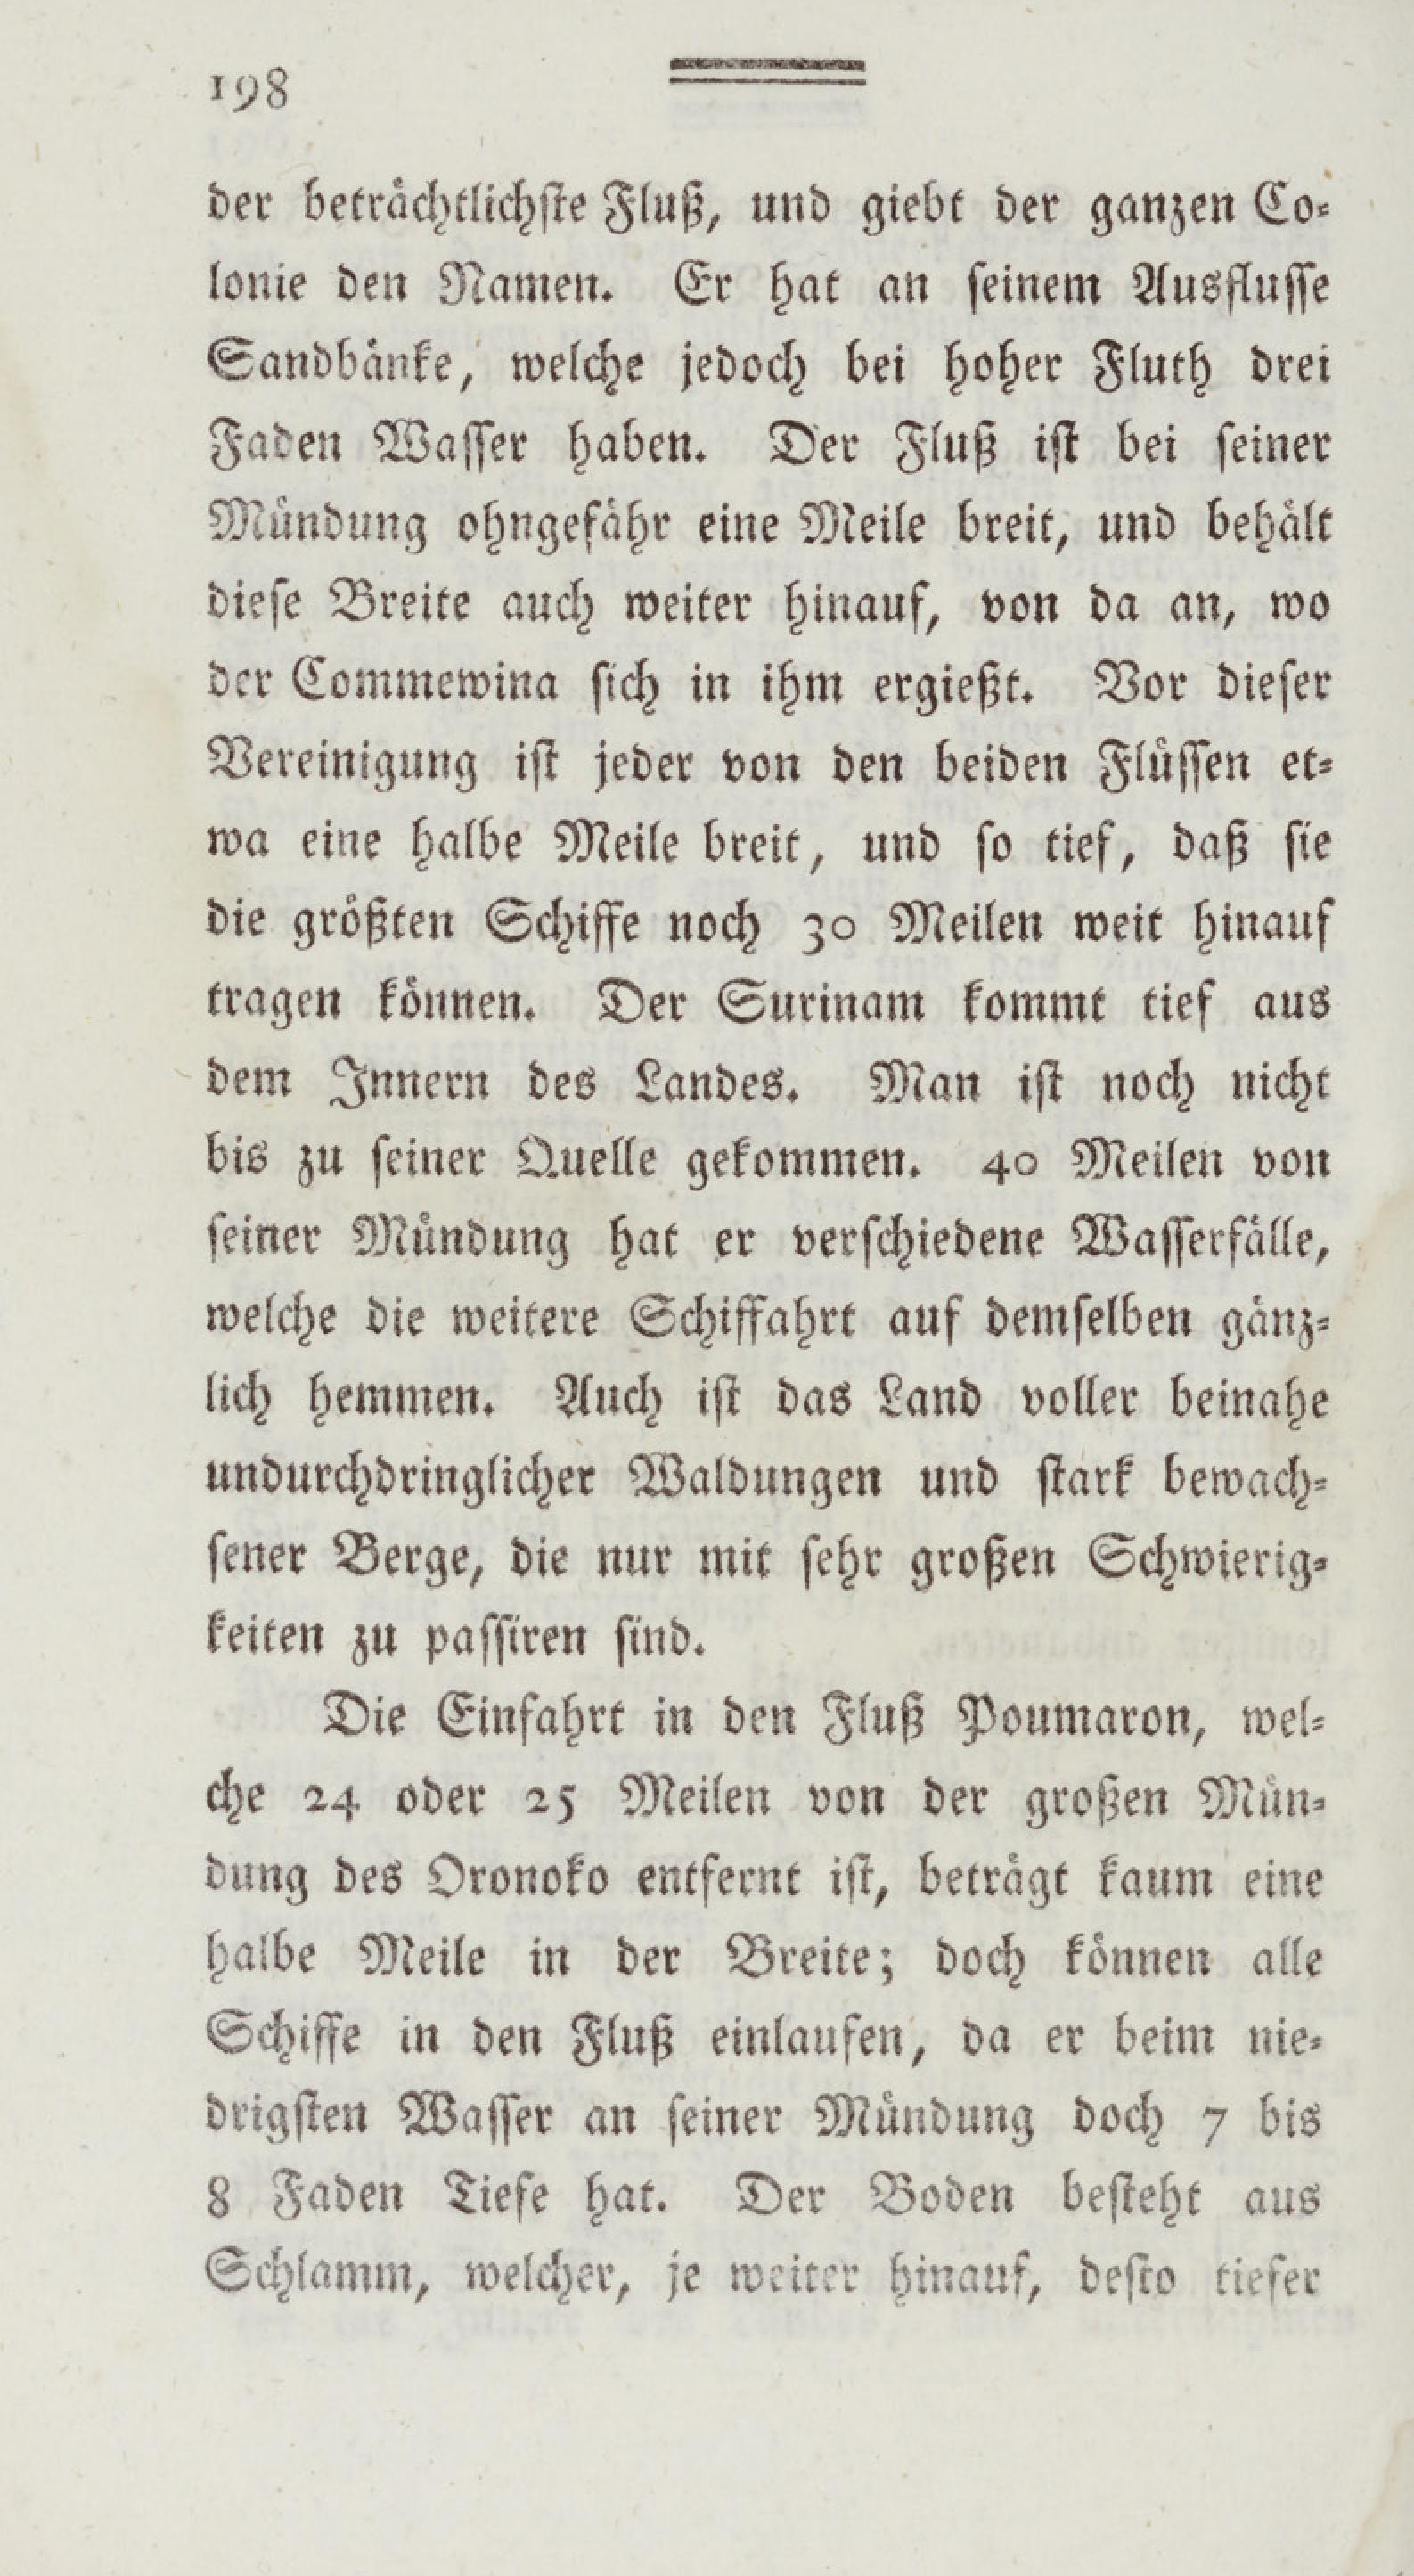 198
der beträchtlichſte Fluß, und giebt der ganzen Co-
lonie den Namen. Er hat an ſeinem Ausfluſſe
Sandbänke, welche jedoch bei hoher Fluth drei
Faden Waſſer haben. Der Fluß iſt bei ſeiner
Mündung ohngefähr eine Meile breit, und behält
dieſe Breite auch weiter hinauf, von da an, wo
der Commewina ſich in ihm ergießt. Vor dieſer
Vereinigung iſt jeder von den beiden Flüſſen et-
wa eine halbe Meile breit, und ſo tief, daß ſie
die größten Schiffe noch 30 Meilen weit hinauf
tragen können. Der Surinam kommt tief aus
dem Innern des Landes. Man iſt noch nicht
bis zu ſeiner Quelle gekommen. 40 Meilen von
ſeiner Mündung hat er verſchiedene Waſſerfälle,
welche die weitere Schiffahrt auf demſelben gänz-
lich hemmen. Auch iſt das Land voller beinahe
undurchdringlicher Waldungen und ſtark bewach-
ſener Berge, die nur mit ſehr großen Schwierig-
keiten zu paſſiren ſind.
Die Einfahrt in den Fluß Poumaron, wel-
che 24 oder 25 Meilen von der großen Mün-
dung des Oronoko entfernt iſt, beträgt kaum eine
halbe Meile in der Breite; doch können alle
Schiffe in den Fluß einlaufen, da er beim nie-
drigſten Waſſer an ſeiner Mündung doch 7 bis
8 Faden Tiefe hat. Der Boden beſteht aus
Schlamm, welcher, je weiter hinauf, deſto tiefer